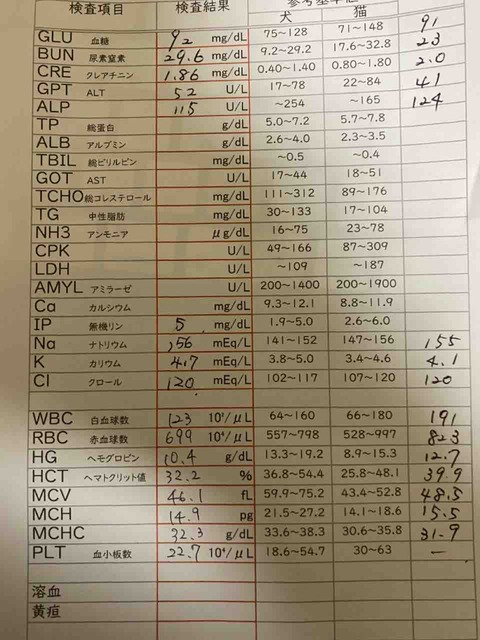 検査項目 検査結果 参考基準値
犬 猫
GLU 血糖 92 mg/dL 75~128 71~148 91
BUN 尿素窒素 29.6 mg/dL 9.2~29.2 17.6~32.8 23
CRE クレアチニン 1.86 mg/dL 0.40~1.40 0.80~1.80 2.0
GPT ALT 52 U/L 17~78 22~84 41
ALP 115 U/L ~254 ~165 124
TP 総蛋白 g/dL 5.0~7.2 5.7~7.8
ALB アルブミン g/dL 2.6~4.0 2.3~3.5
TBIL 総ビリルビン mg/dL ~0.5 ~0.4
GOT AST U/L 17~44 18~51
TCHO 総コレステロール mg/dL 111~312 89~176
TG 中性脂肪 mg/dL 30~133 17~104
NH3 アンモニア μg/dL 16~75 23~78
CPK U/L 49~166 87~309
LDH U/L ~109 ~187
AMYL アミラーゼ U/L 200~1400 200~1900
Ca カルシウム mg/dL 9.3~12.1 8.8~11.9
IP 無機リン 5 mg/dL 1.9~5.0 2.6~6.0
Na ナトリウム 156 mEq/L 141~152 147~156 155
K カリウム 4.7 mEq/L 3.8~5.0 3.4~4.6 4.1
Cl クロール 120 mEq/L 102~117 107~120 120
WBC 白血球数 123 10²/μL 64~160 66~180 191
RBC 赤血球数 699 10⁴/μL 557~798 528~997 823
HG ヘモグロビン 10.4 g/dL 13.3~19.2 8.9~15.3 12.7
HCT ヘマトクリット値 32.2 % 36.8~54.4 25.8~48.1 39.9
MCV 46.1 fL 59.9~75.2 43.4~52.8 48.5
MCH 14.9 pg 21.5~27.2 14.1~18.6 15.5
MCHC 32.3 g/dL 33.6~38.3 30.6~35.8 31.9
PLT 血小板数 22.7 10⁴/μL 18.6~54.7 30~63 —
溶血
黄疸